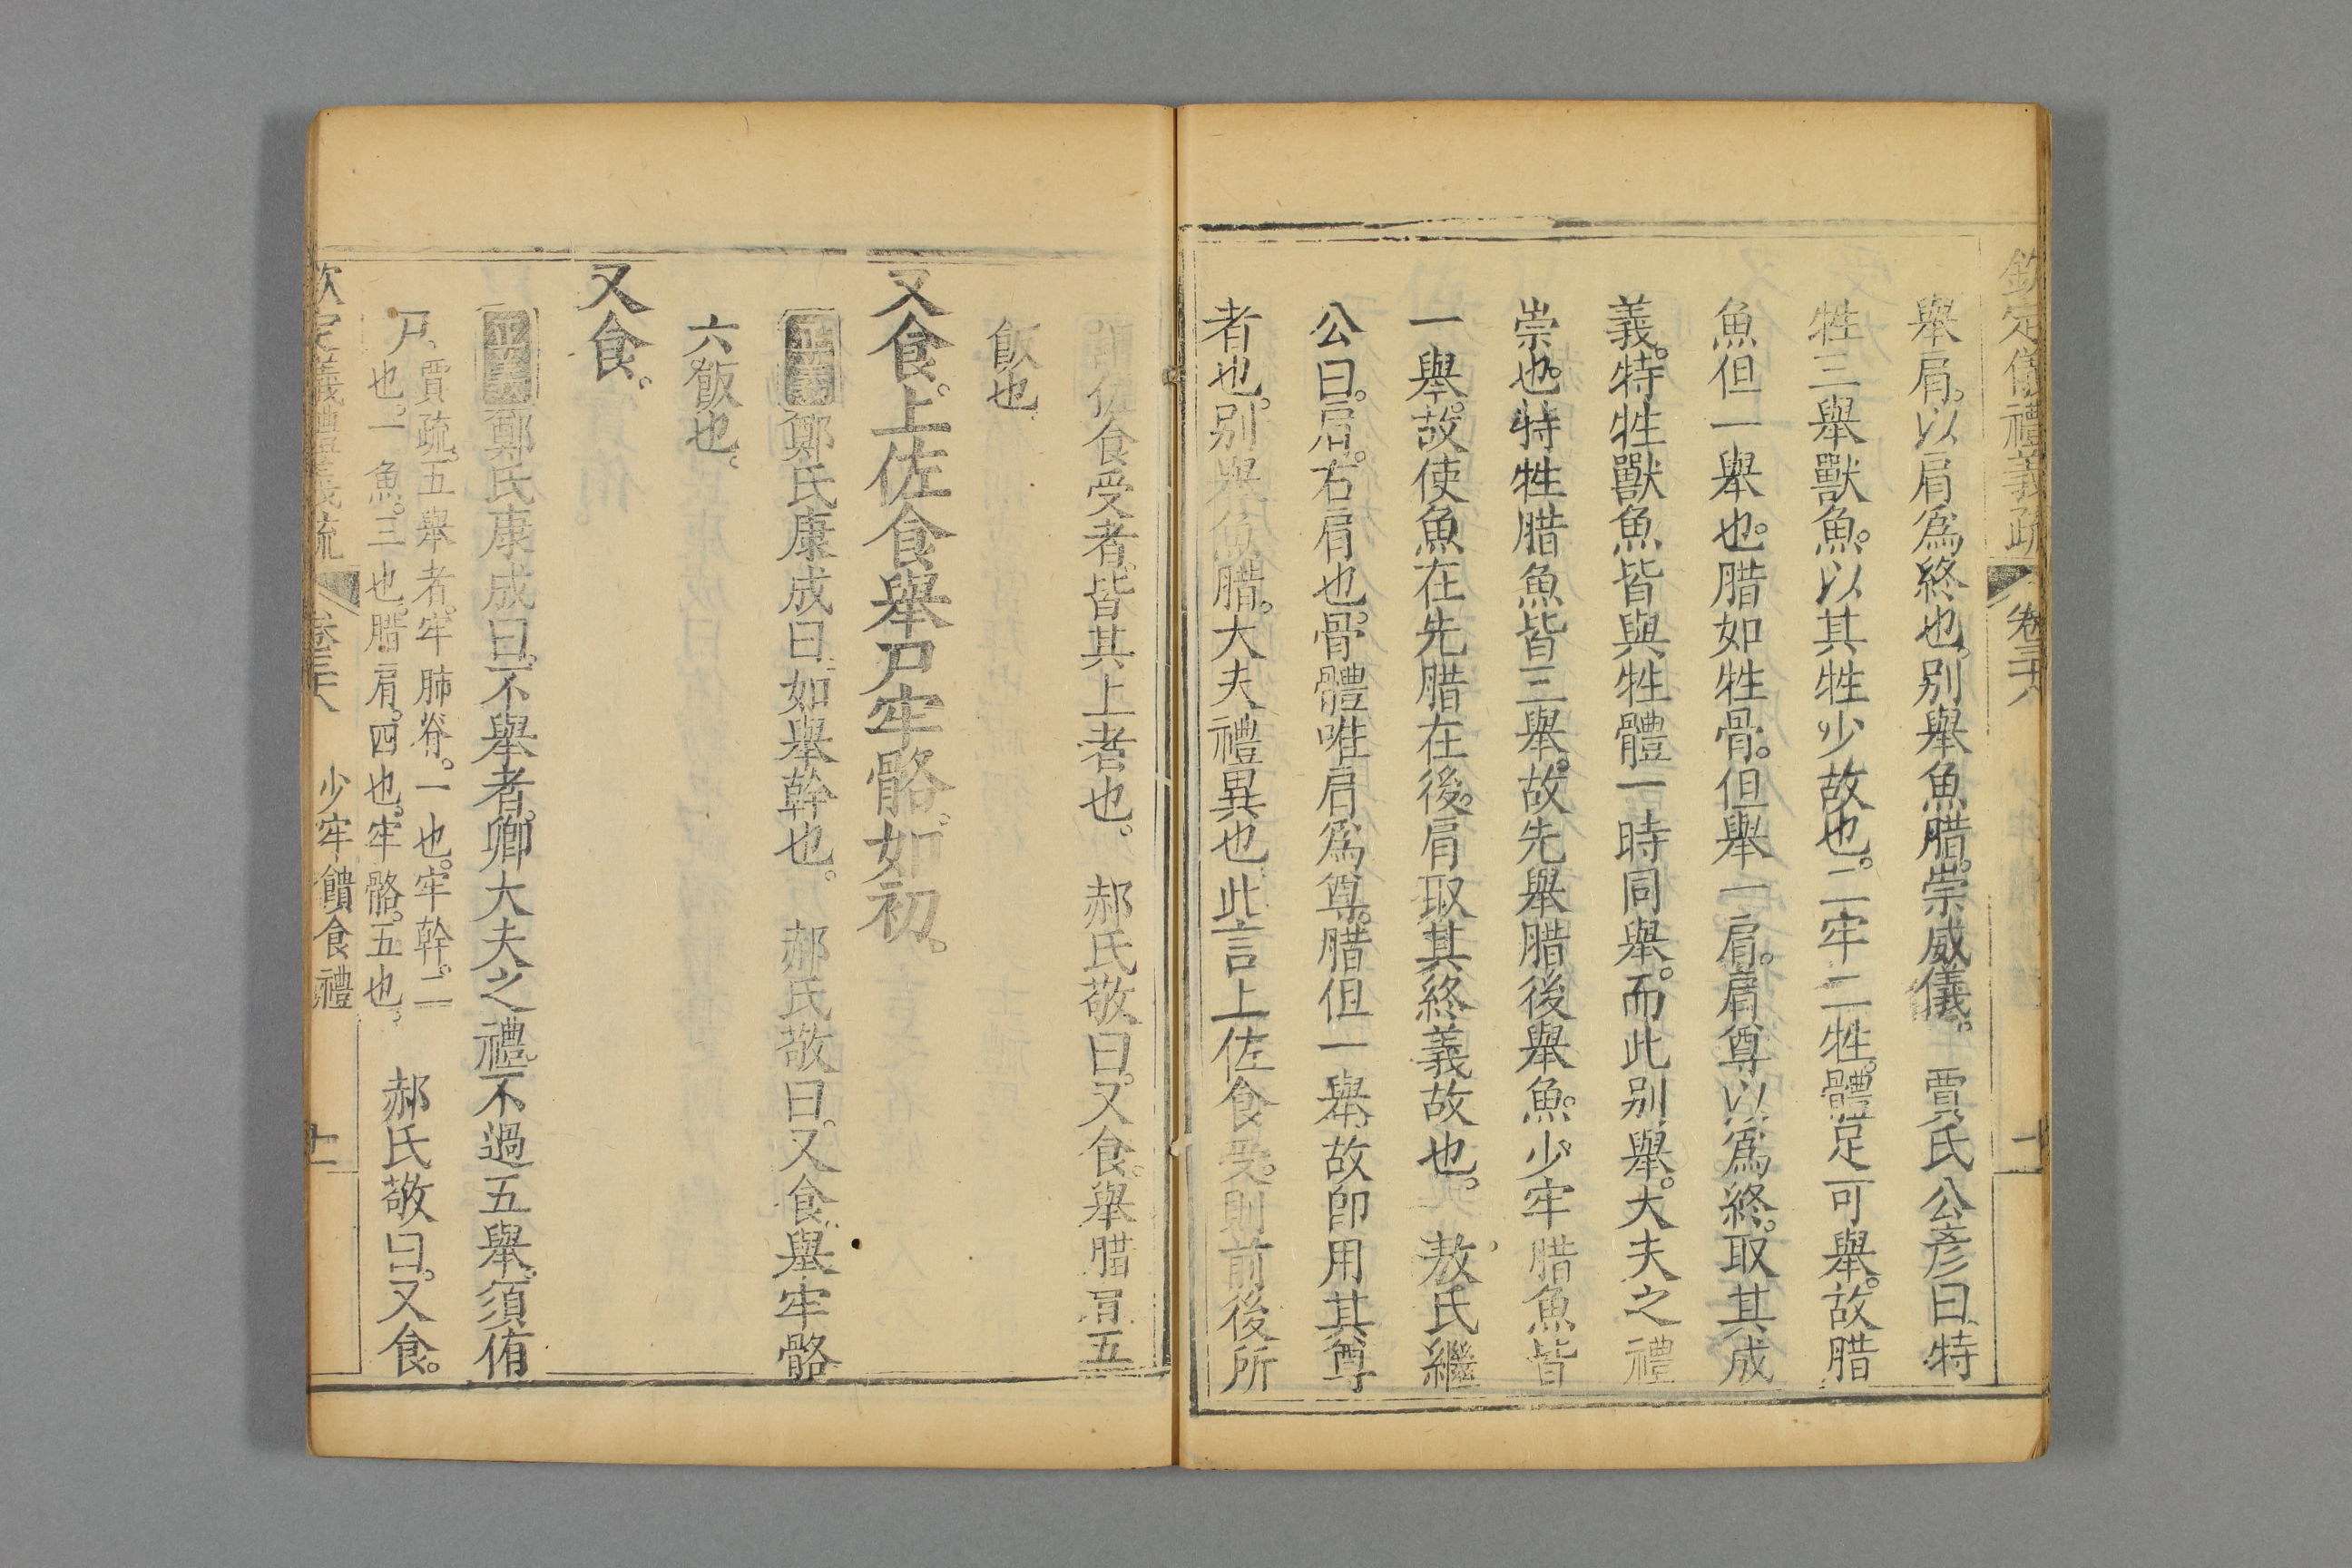 欽定儀禮義疏 卷三十八 十一
舉肩。以肩爲終也。別舉魚腊。崇威儀。 賈氏公彥曰。特
牲三舉獸魚。以其牲少故也。二牢二牲。體足可舉。故腊
魚但一舉也。腊如牲骨。但舉一肩。肩尊以爲終。取其成
義。特牲獸魚皆與牲體一時同舉。而此別舉。大夫之禮
崇也。特牲腊魚皆三舉。故先舉腊後舉魚。少牢腊魚皆
一舉。故使魚在先腊在後。肩取其終義故也。 敖氏繼
公曰。肩。右肩也。骨體唯肩爲尊。腊但一舉。故卽用其尊
者也。別舉魚腊。大夫禮異也。此言上佐食受。則前後所
謂佐食受者。皆其上者也。 郝氏敬曰。又食。舉腊肩五
飯也
又食。上佐食舉尸牢骼。如初。
正義鄭氏康成曰。如舉幹也。 郝氏敬曰。又食。舉牢骼
六飯也。
又食。
正義鄭氏康成曰。不舉者。卿大夫之禮。不過五舉。須侑
尸、賈疏。五舉者。牢肺脊。一也。牢幹。二也。一魚。三也。腊肩。四也。牢骼。五也。 郝氏敬曰。又食。
欽定儀禮義疏 卷三十八 少牢饋食禮 十一